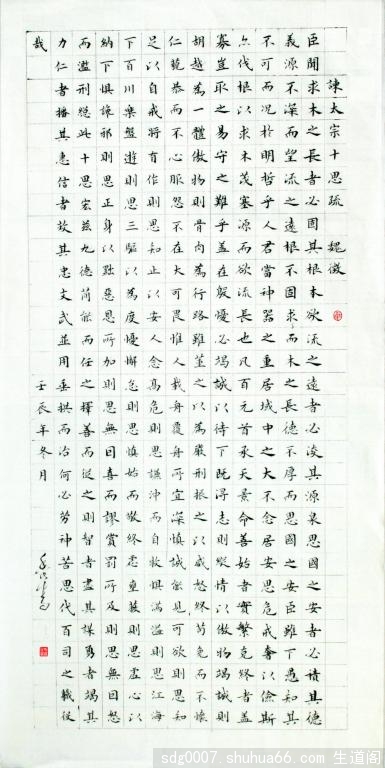 諫太宗十思疏 魏徵
臣聞求木之長者必固其根本欲流之遠者必浚其源泉思國之安者必積其德
義源不深而望流之遠根不固求而木之長德不厚而思國之安臣雖下愚知其
不可而況於明哲乎人君當神器之重居域中之大不念居安思危戒奢以儉斯
亦伐根以求木茂塞源而欲流長也凡百元首承天景命善始者實繁克終者蓋
寡豈取之易守之難乎蓋在殷憂必竭誠以待下既得志則縱情以傲物竭誠則
胡越為一體傲物則骨肉為行路雖董之以為嚴刑振之以威怒終苟免而不懷
仁貌恭而不心服怨不在大可畏惟人載舟覆舟所宜深慎誠能見可欲則思知
足以自戒將有作則思知止以安人念高危則思謙沖而自牧懼滿溢則思江海
下百川樂盤遊則思三驅以為度憂懈怠則思慎始而敬終慮壅蔽則思虛心以
納下懼讒邪則思正身以黜惡恩所加則思無因喜而謬賞罰所及則思無因怒
而濫刑總此十思宏茲九德簡能而任之擇善而從之則智者盡其謀勇者竭其
力仁者播其惠信者效其忠文武並用垂拱而治何必勞神苦思代百司之職役
哉
壬辰年冬月
sdg0007.shuhua66.com 生道阁